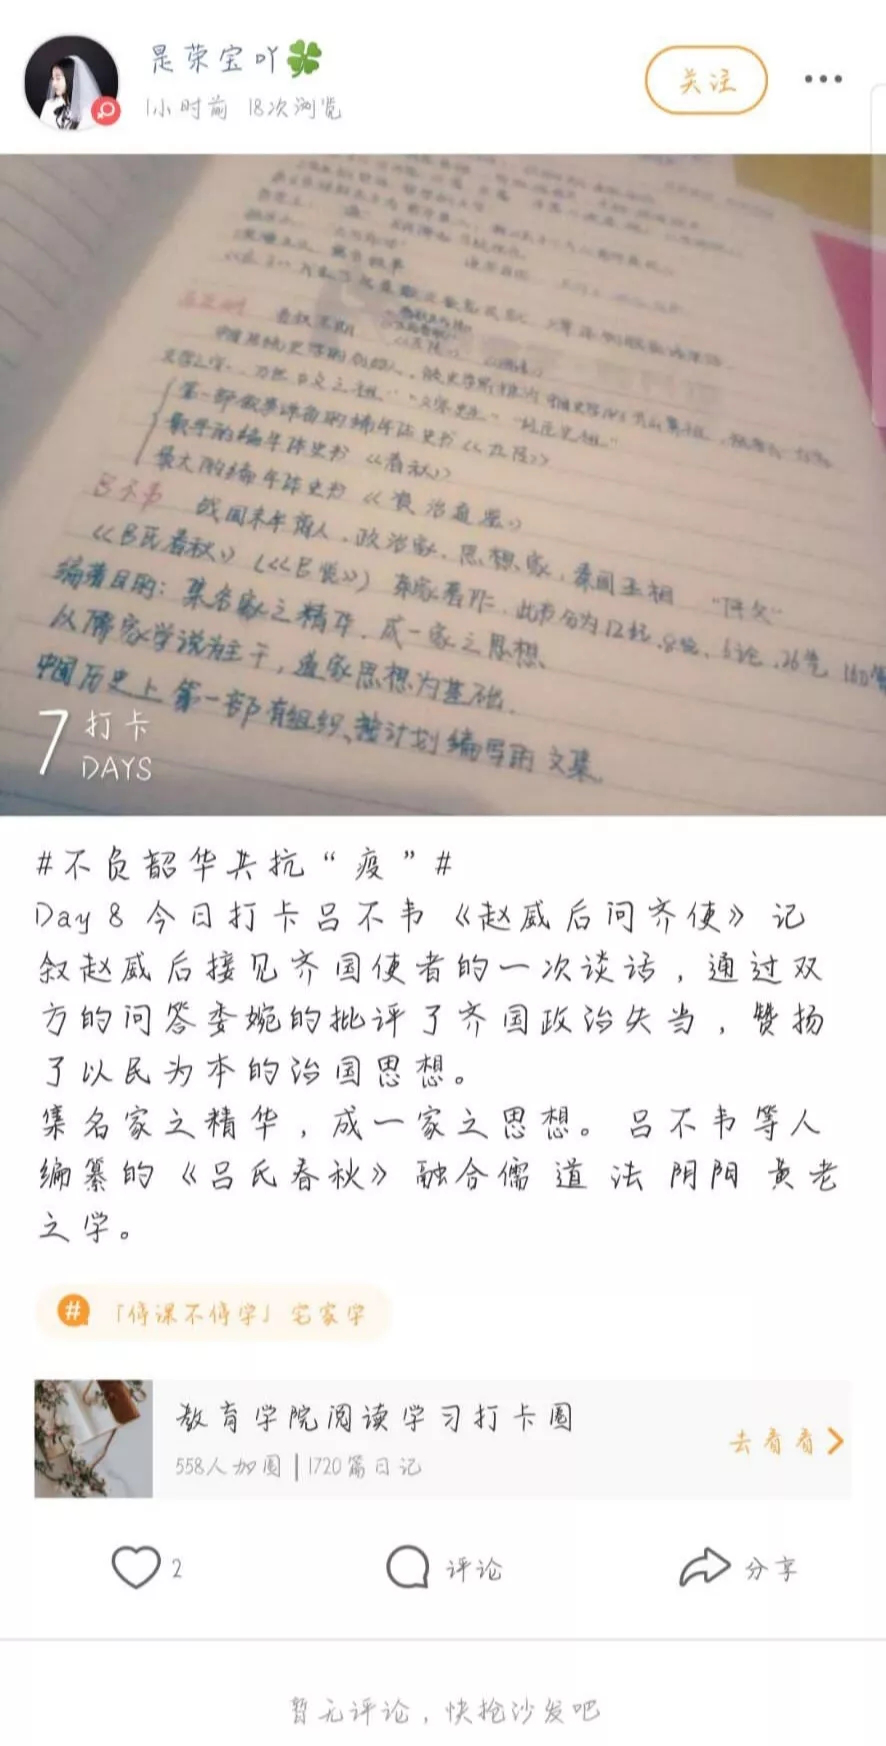 是荣宝吖🍀
关注
1小时前 18次浏览
左丘明 春秋末期
第一部叙事详备的编年体史书《左传》
最早的编年体史书《春秋》
最大的编年体史书《资治通鉴》
吕不韦 战国末年商人、政治家、思想家,秦国丞相 "仲父"
《吕氏春秋》(《吕览》) 杂家著作,此书分为12纪、8览、6论、26卷、160篇
编著目的:集名家之精华,成一家之思想、
以儒家学说为主干,道家思想为基础.
中国历史上第一部有组织、按计划编写的文集.
7 打卡
DAYS
#不负韶华共抗“疫”#
Day 8 今日打卡吕不韦《赵威后问齐使》记
叙赵威后接见齐国使者的一次谈话,通过双
方的问答委婉的批评了齐国政治失当,赞扬
了以民为本的治国思想。
集名家之精华,成一家之思想。吕不韦等人
编纂的《吕氏春秋》融合儒 道 法 阴阳 黄老
之学。
# 「停课不停学」宅家学
教育学院阅读学习打卡圈
558人加圈 | 1720篇日记
去看看
2
评论
分享
暂无评论,快抢沙发吧